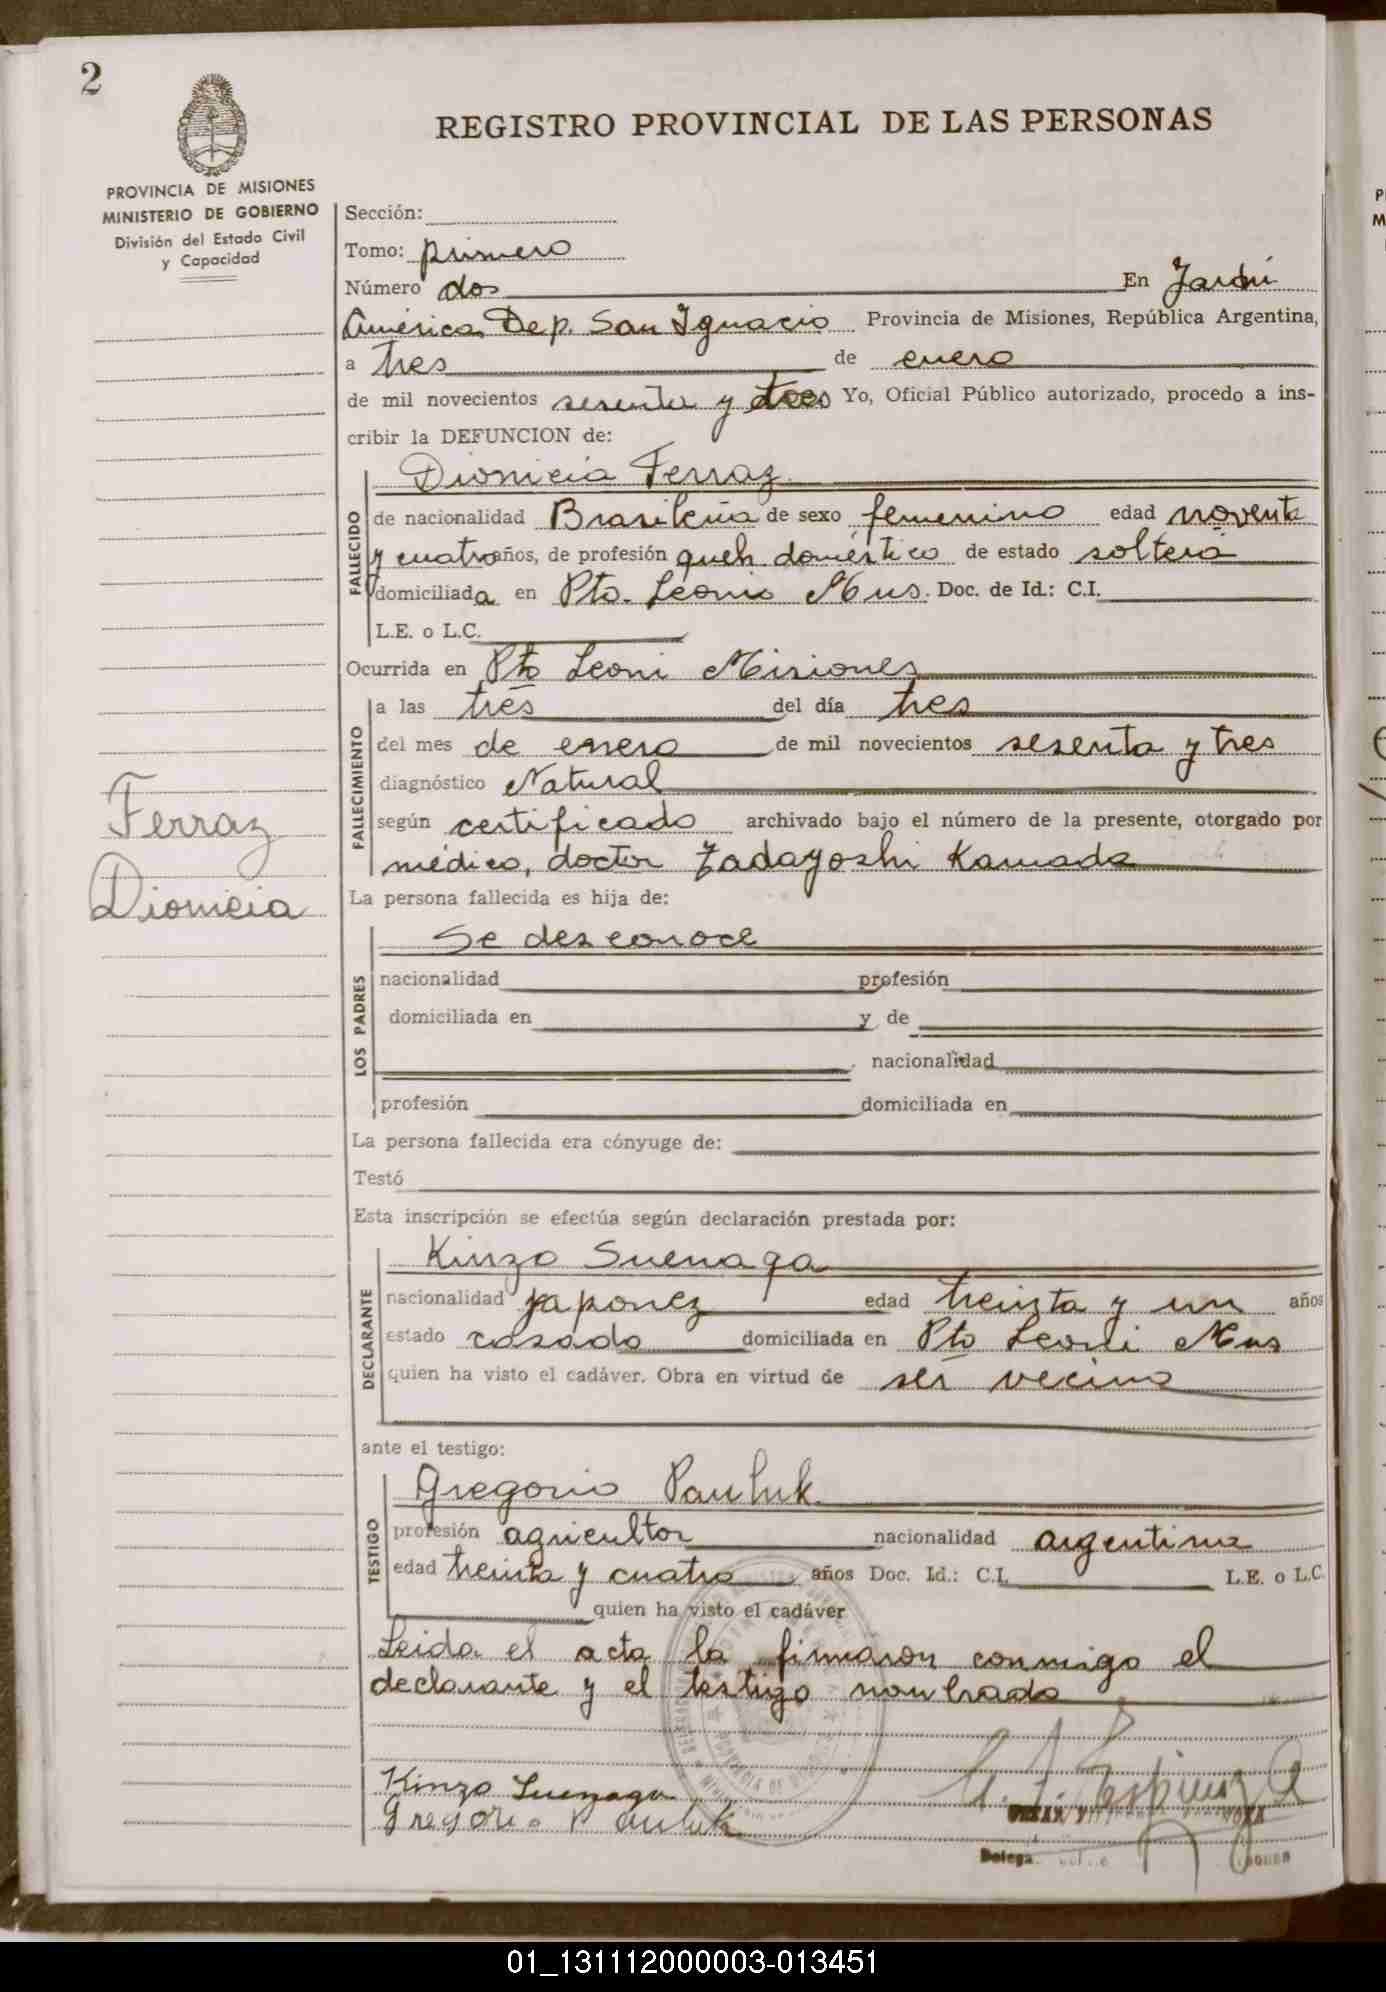 2
REGISTRO PROVINCIAL DE LAS PERSONAS
PROVINCIA DE MISIONES
MINISTERIO DE GOBIERNO
División del Estado Civil
y Capacidad
Sección:
Tomo: primero
Número dos En Jardín
América Dep. San Ignacio Provincia de Misiones, República Argentina,
a tres de enero
de mil novecientos sesenta y tres Yo, Oficial Público autorizado, procedo a ins-
cribir la DEFUNCION de:
FALLECIDO
Dionicia Ferraz
de nacionalidad Brasileña de sexo femenino edad noventa
y cuatro años, de profesión queh. doméstico de estado soltera
domiciliada en Pto. Leoni Mns. Doc. de Id.: C.I.
L.E. o L.C.
Ocurrida en Pto Leoni Misiones
FALLECIMIENTO
a las tres del día tres
del mes de enero de mil novecientos sesenta y tres
diagnóstico Natural
según certificado archivado bajo el número de la presente, otorgado por
médico, doctor Tadayoshi Kamada
Ferraz
Dionicia
La persona fallecida es hija de:
LOS PADRES
Se desconoce
nacionalidad profesión
domiciliada en y de
nacionalidad
profesión domiciliada en
La persona fallecida era cónyuge de:
Testó
Esta inscripción se efectúa según declaración prestada por:
DECLARANTE
Kinzo Suenaga
nacionalidad japonez edad treinta y un años
estado casado domiciliada en Pto Leoni Mns
quien ha visto el cadáver. Obra en virtud de ser vecino
ante el testigo:
TESTIGO
Gregorio Pauluk
profesión agricultor nacionalidad argentina
edad treinta y cuatro años Doc. Id.: C.I. L.E. o L.C.
quien ha visto el cadáver
Leida el acta la firmaron conmigo el
declarante y el testigo nombrado
Kinzo Suenaga
Gregorio Pauluk
01_131112000003-013451